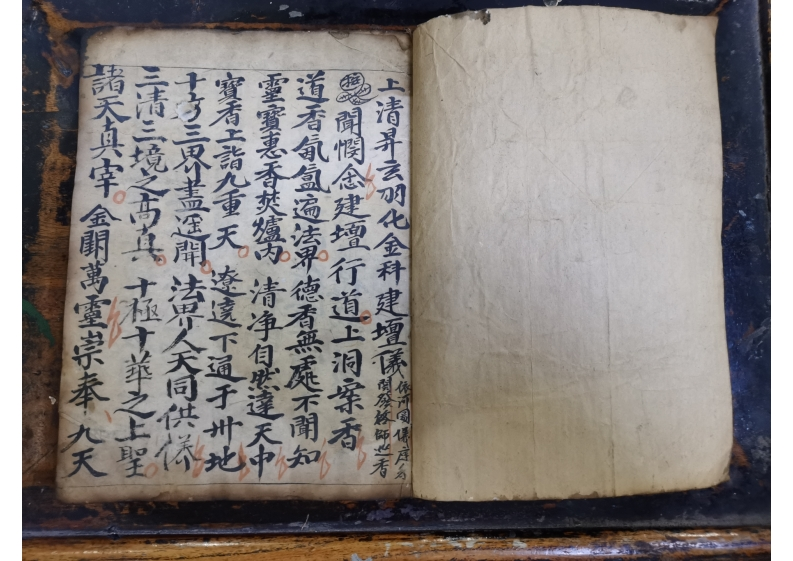 上清昇玄羽化金科建壇儀
聞憫念建壇行道上洞案香
道香氤氳遍法界德香無處不聞知
靈寶惠香焚爐内清净自然達天中
寶香上詣九重天遼遶下通于卅地
十方三界盖遥聞法界人天同供養
三清三境之高真十極十華之上聖
諸天真宰金闕萬靈崇奉九天